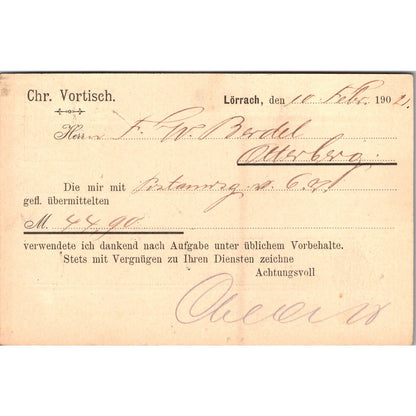 Chr. Vortisch.
Lörrach, den 10 Febr. 1902.
Herrn F. W. Berdel
Otterberg
Die mir mit Postanwsg v. 6.
gefl. übermittelten
M. 44,90
verwendete ich dankend nach Aufgabe unter üblichem Vorbehalte.
Stets mit Vergnügen zu Ihren Diensten zeichne
Achtungsvoll